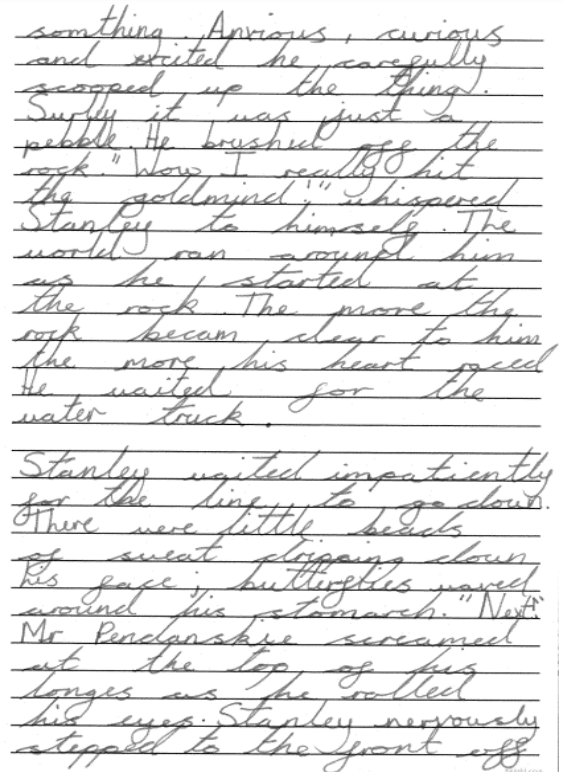 somthing. Anxious, curious
and excited he carefully
scooped up the thing.
Surley it was just a
pebble. He brushed off the
rock. "Wow I really hit
the goldmind." whispered
Stanley to himself. The
world ran around him
as he started at
the rock. The more the
rock becam clear to him
the more his heart raced
He waited for the
water truck.
Stanley waited impatiently
for the line to go down.
There were little beads
of sweat dripping down
his face; butterflies waved
around his stomarch. "Next!"
Mr Pendanskie screamed
at the top of his
longes as he rolled
his eyes. Stanley nervously
stepped to the front off